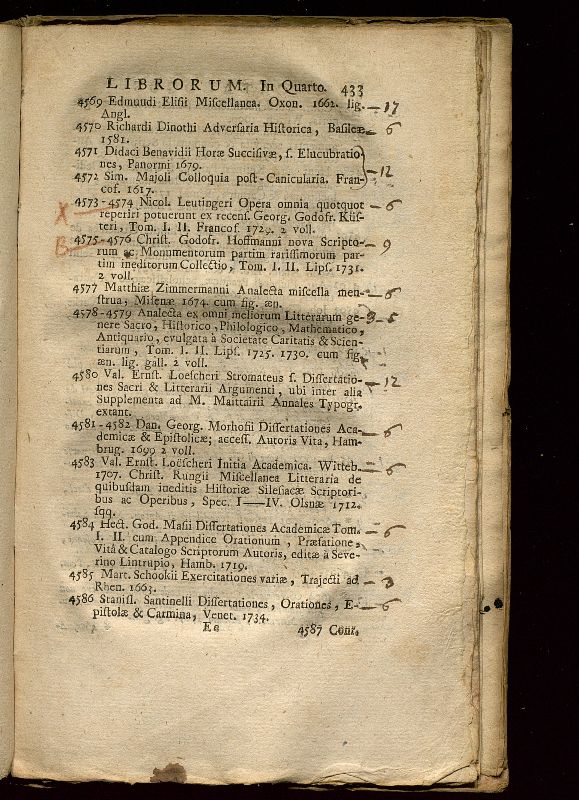 LIBRORUM. In Quarto. 433
4569 Edmundi Elisii Miscellanea. Oxon. 1662. lig. — 17
Angl.
4570 Richardi Dinothi Adversaria Historica, Basileæ — 6
1581.
4571 Didaci Benavidii Horæ Succisivæ, s. Elucubratio-
nes, Panormi 1679. — 12
4572 Sim. Majoli Colloquia post-Canicularia. Fran-
cof. 1617.
X 4573-4574 Nicol. Leutingeri Opera omnia quotquot — 6
reperiri potuerunt ex recens. Georg. Godofr. Küs-
teri, Tom. I. II. Francof. 1729. 2 voll.
B 4575-4576 Christ. Godofr. Hoffmanni nova Scripto- — 9
rum ac Monumentorum partim rarissimorum par-
tim ineditorum Collectio, Tom. I. II. Lips. 1731.
2 voll.
4577 Matthiæ Zimmermanni Analecta miscella men- — 6
strua, Misenæ 1674. cum fig. æn.
4578-4579 Analecta ex omni meliorum Litterarum ge- 3 — 5
nere Sacro, Historico, Philologico, Mathematico,
Antiquario, evulgata à Societate Caritatis & Scien-
tiarum, Tom. I. II. Lips. 1725. 1730. cum fig.
æn. lig. gall. 2 voll.
4580 Val. Ernst. Loescheri Stromateus s. Dissertatio- — 12
nes Sacri & Litterarii Argumenti, ubi inter alia
Supplementa ad M. Maittairii Annales Typogr.
extant.
4581-4582 Dan. Georg. Morhofii Dissertationes Aca- — 6
demicæ & Epistolicæ; access. Autoris Vita, Ham-
brug. 1699 2 voll.
4583 Val. Ernst. Loëscheri Initia Academica. Witteb. — 6
1707. Christ. Rungii Miscellanea Litteraria de
quibusdam ineditis Historiæ Silesiacæ Scriptori-
bus ac Operibus, Spec. I—IV. Olsnæ 1712.
sqq.
4584 Hect. God. Masii Dissertationes Academicæ Tom. — 6
I. II. cum Appendice Orationum, Præfatione,
Vitâ & Catalogo Scriptorum Autoris, editæ à Seve-
rino Lintrupio, Hamb. 1719.
4585 Mart. Schookii Exercitationes variæ, Trajecti ad — 3
Rhen. 1663.
4586 Stanisl. Santinelli Dissertationes, Orationes, E- — 6
pistolæ & Carmina, Venet. 1734.
Ee 4587 Conr.